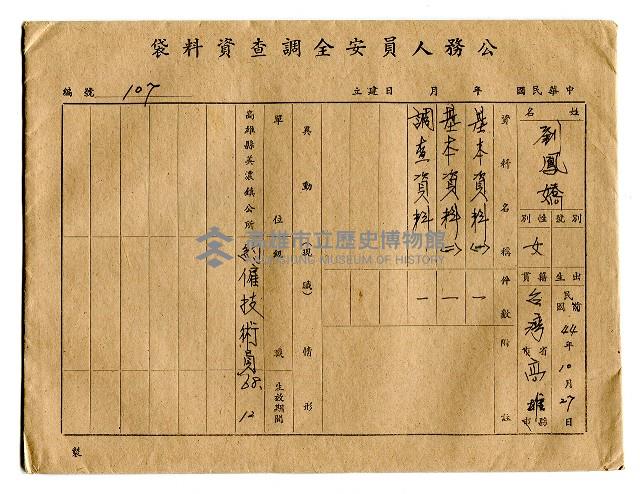 公務人員安全調查資料袋
中華民國　年　月　日建立
編號 107
姓名 劉鳳嬌
別號
性別 女
出生 民國前 44年10月27日
籍貫 台灣省高雄縣市
資料名稱 件數 附註
基本資料(一) 一
基本資料(二) 一
調查資料 一
異動(現職)情形
單位級職 生效期間
高雄縣美濃鎮公所 約僱技術員 68. 12
高雄市立歷史博物館
KAOHSIUNG MUSEUM OF HISTORY
製